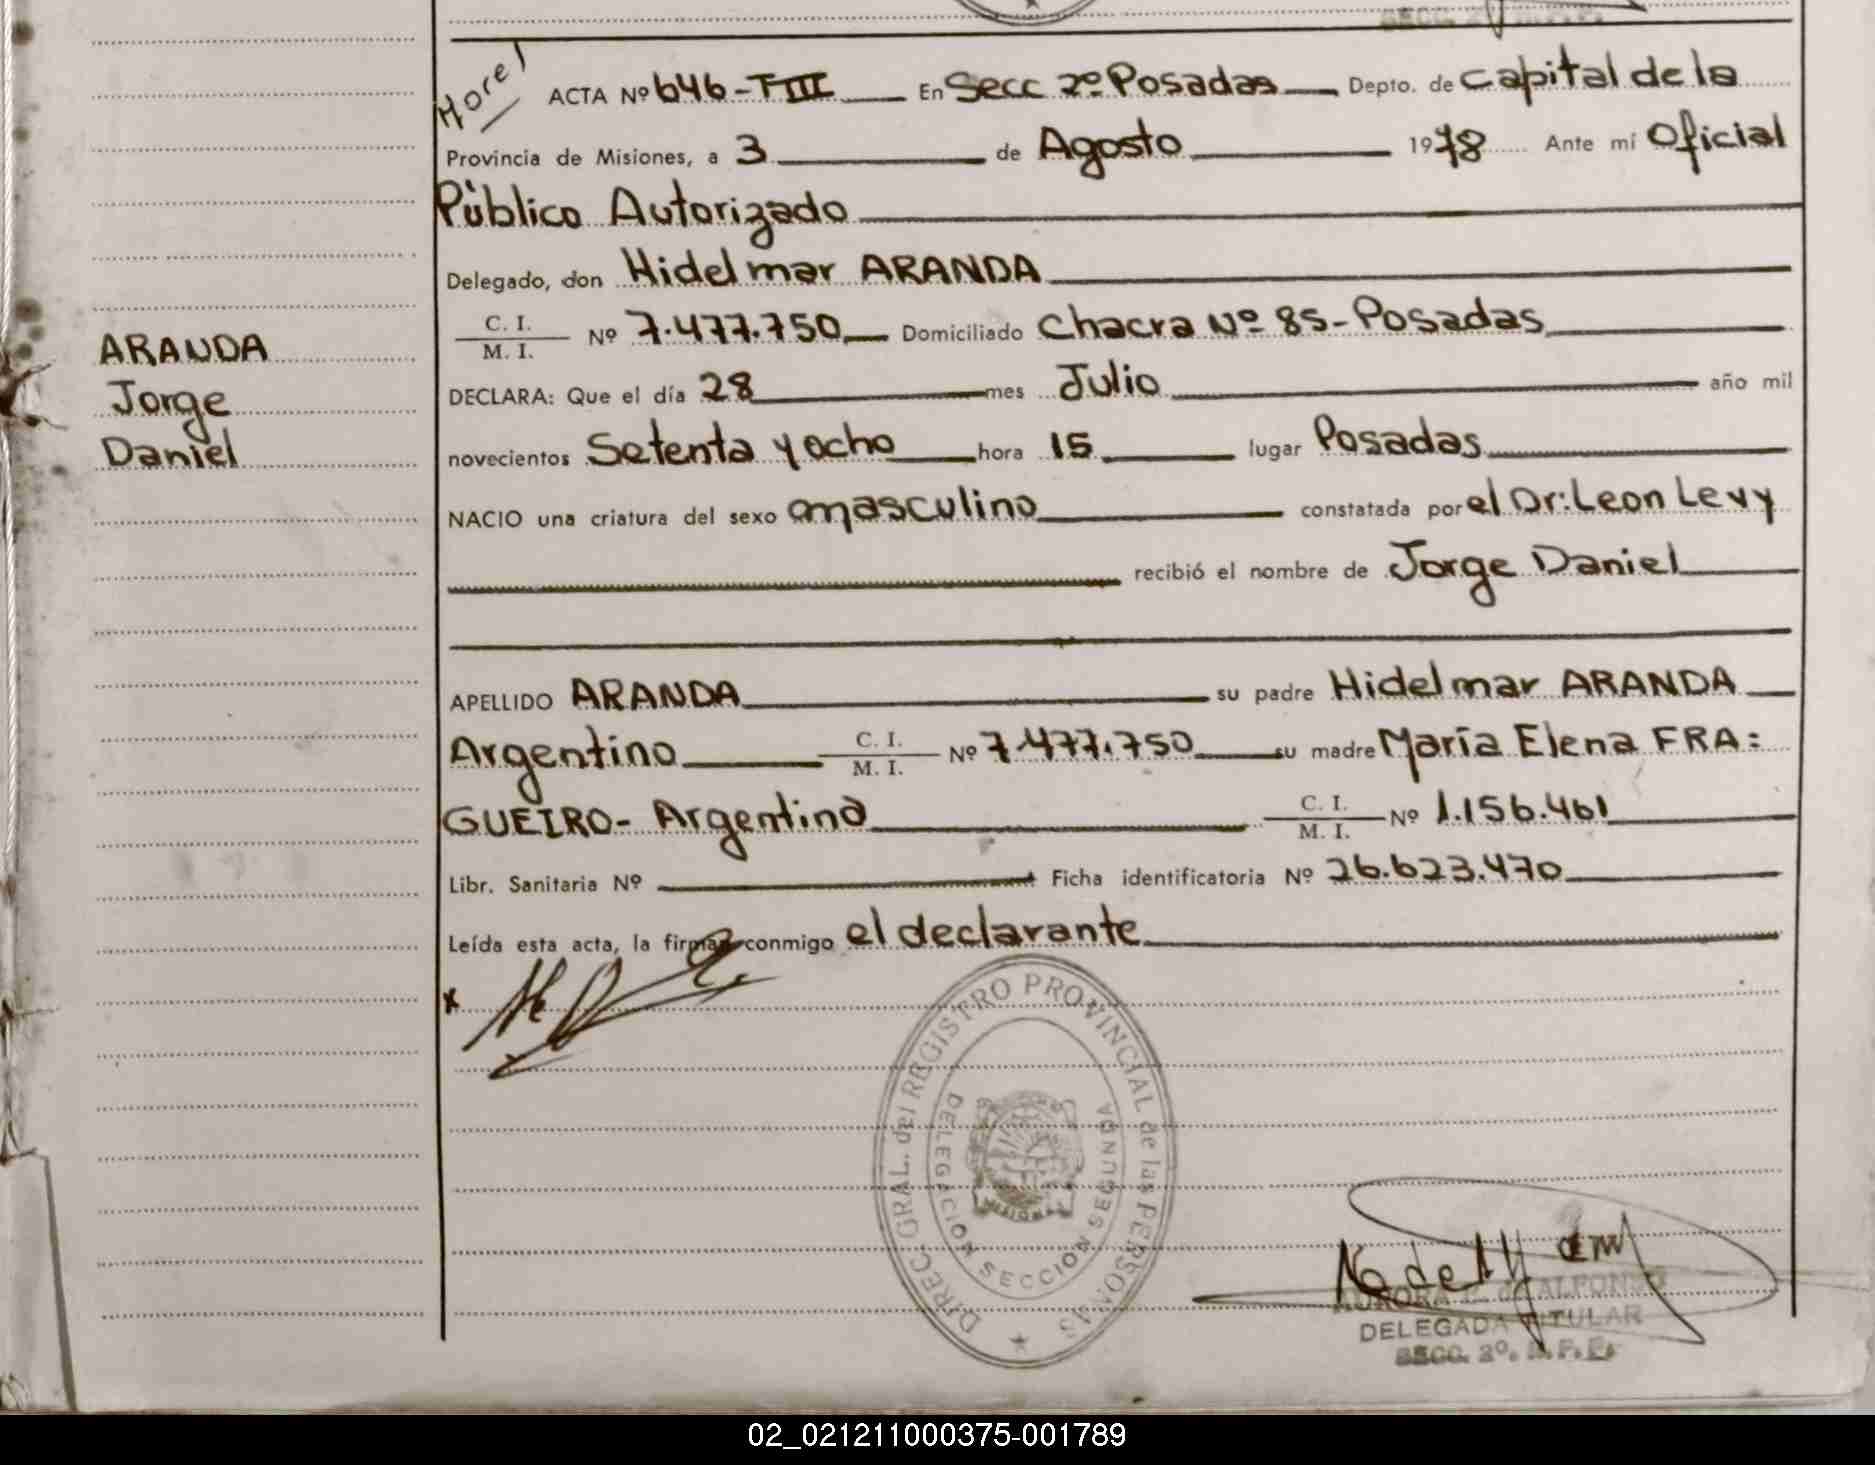 SECC. 2º
Horel
ACTA Nº 646-TIII En Secc 2º Posadas Depto. de Capital de la
Provincia de Misiones, a 3 de Agosto 1978 Ante mí Oficial
Público Autorizado
Delegado, don Hidelmar ARANDA
C. I.
M. I. Nº 7.477.750 Domiciliado Chacra Nº 85-Posadas
ARANDA
Jorge
Daniel
DECLARA: Que el día 28 mes Julio año mil
novecientos Setenta y ocho hora 15 lugar Posadas
NACIO una criatura del sexo masculino constatada por el Dr: Leon Levy
recibió el nombre de Jorge Daniel
APELLIDO ARANDA su padre Hidelmar ARANDA
Argentino C. I. M. I. Nº 7.477.750 su madre María Elena FRA:
GUEIRO- Argentina C. I. M. I. Nº 1.156.461
Libr. Sanitaria Nº Ficha identificatoria Nº 26.623.470
Leída esta acta, la firman conmigo el declarante
x
DIREC. GRAL. del REGISTRO PROVINCIAL de las PERSONAS
DELEGACION SECCION SEGUNDA
MISIONES
AURORA de ALFONSO
DELEGADA TITULAR
SECC. 2º.
02_021211000375-001789